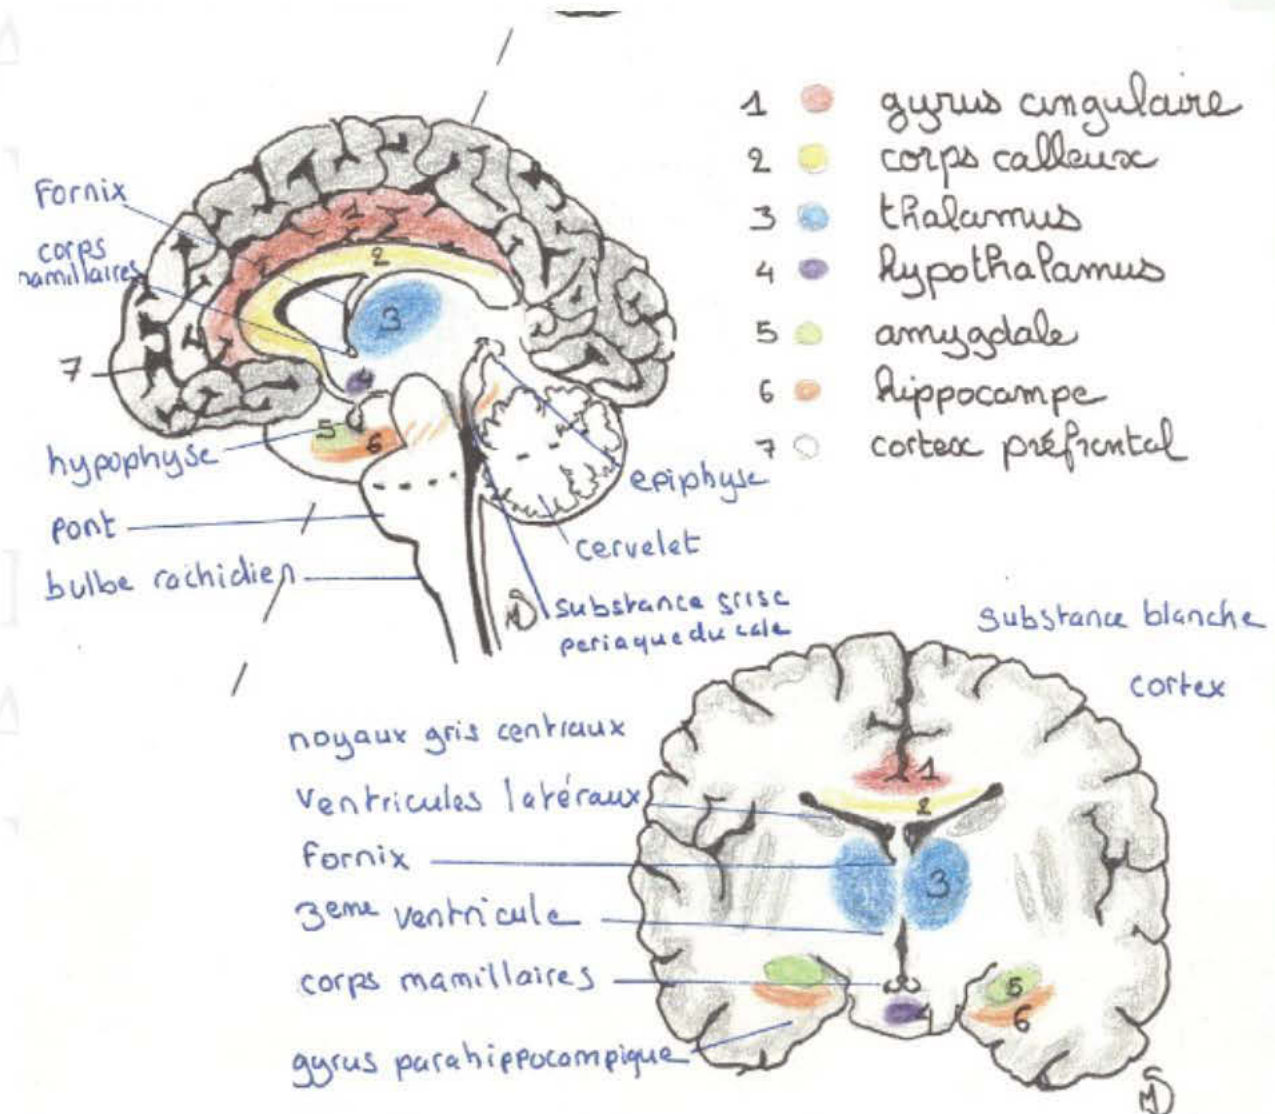 1 gyrus cingulaire
2 corps calleux
3 thalamus
4 hypothalamus
5 amygdale
6 hippocampe
7 cortex préfrontal
Fornix
corps
mamillaires
1
2
3
4
7
5
6
hypophyse
pont
bulbe rachidien
epiphyse
cervelet
substance grise
periaqueducale
substance blanche
cortex
noyaux gris centraux
ventricules latéraux
fornix
3eme ventricule
corps mamillaires
gyrus parahippocampique
1
2
3
4
5
6